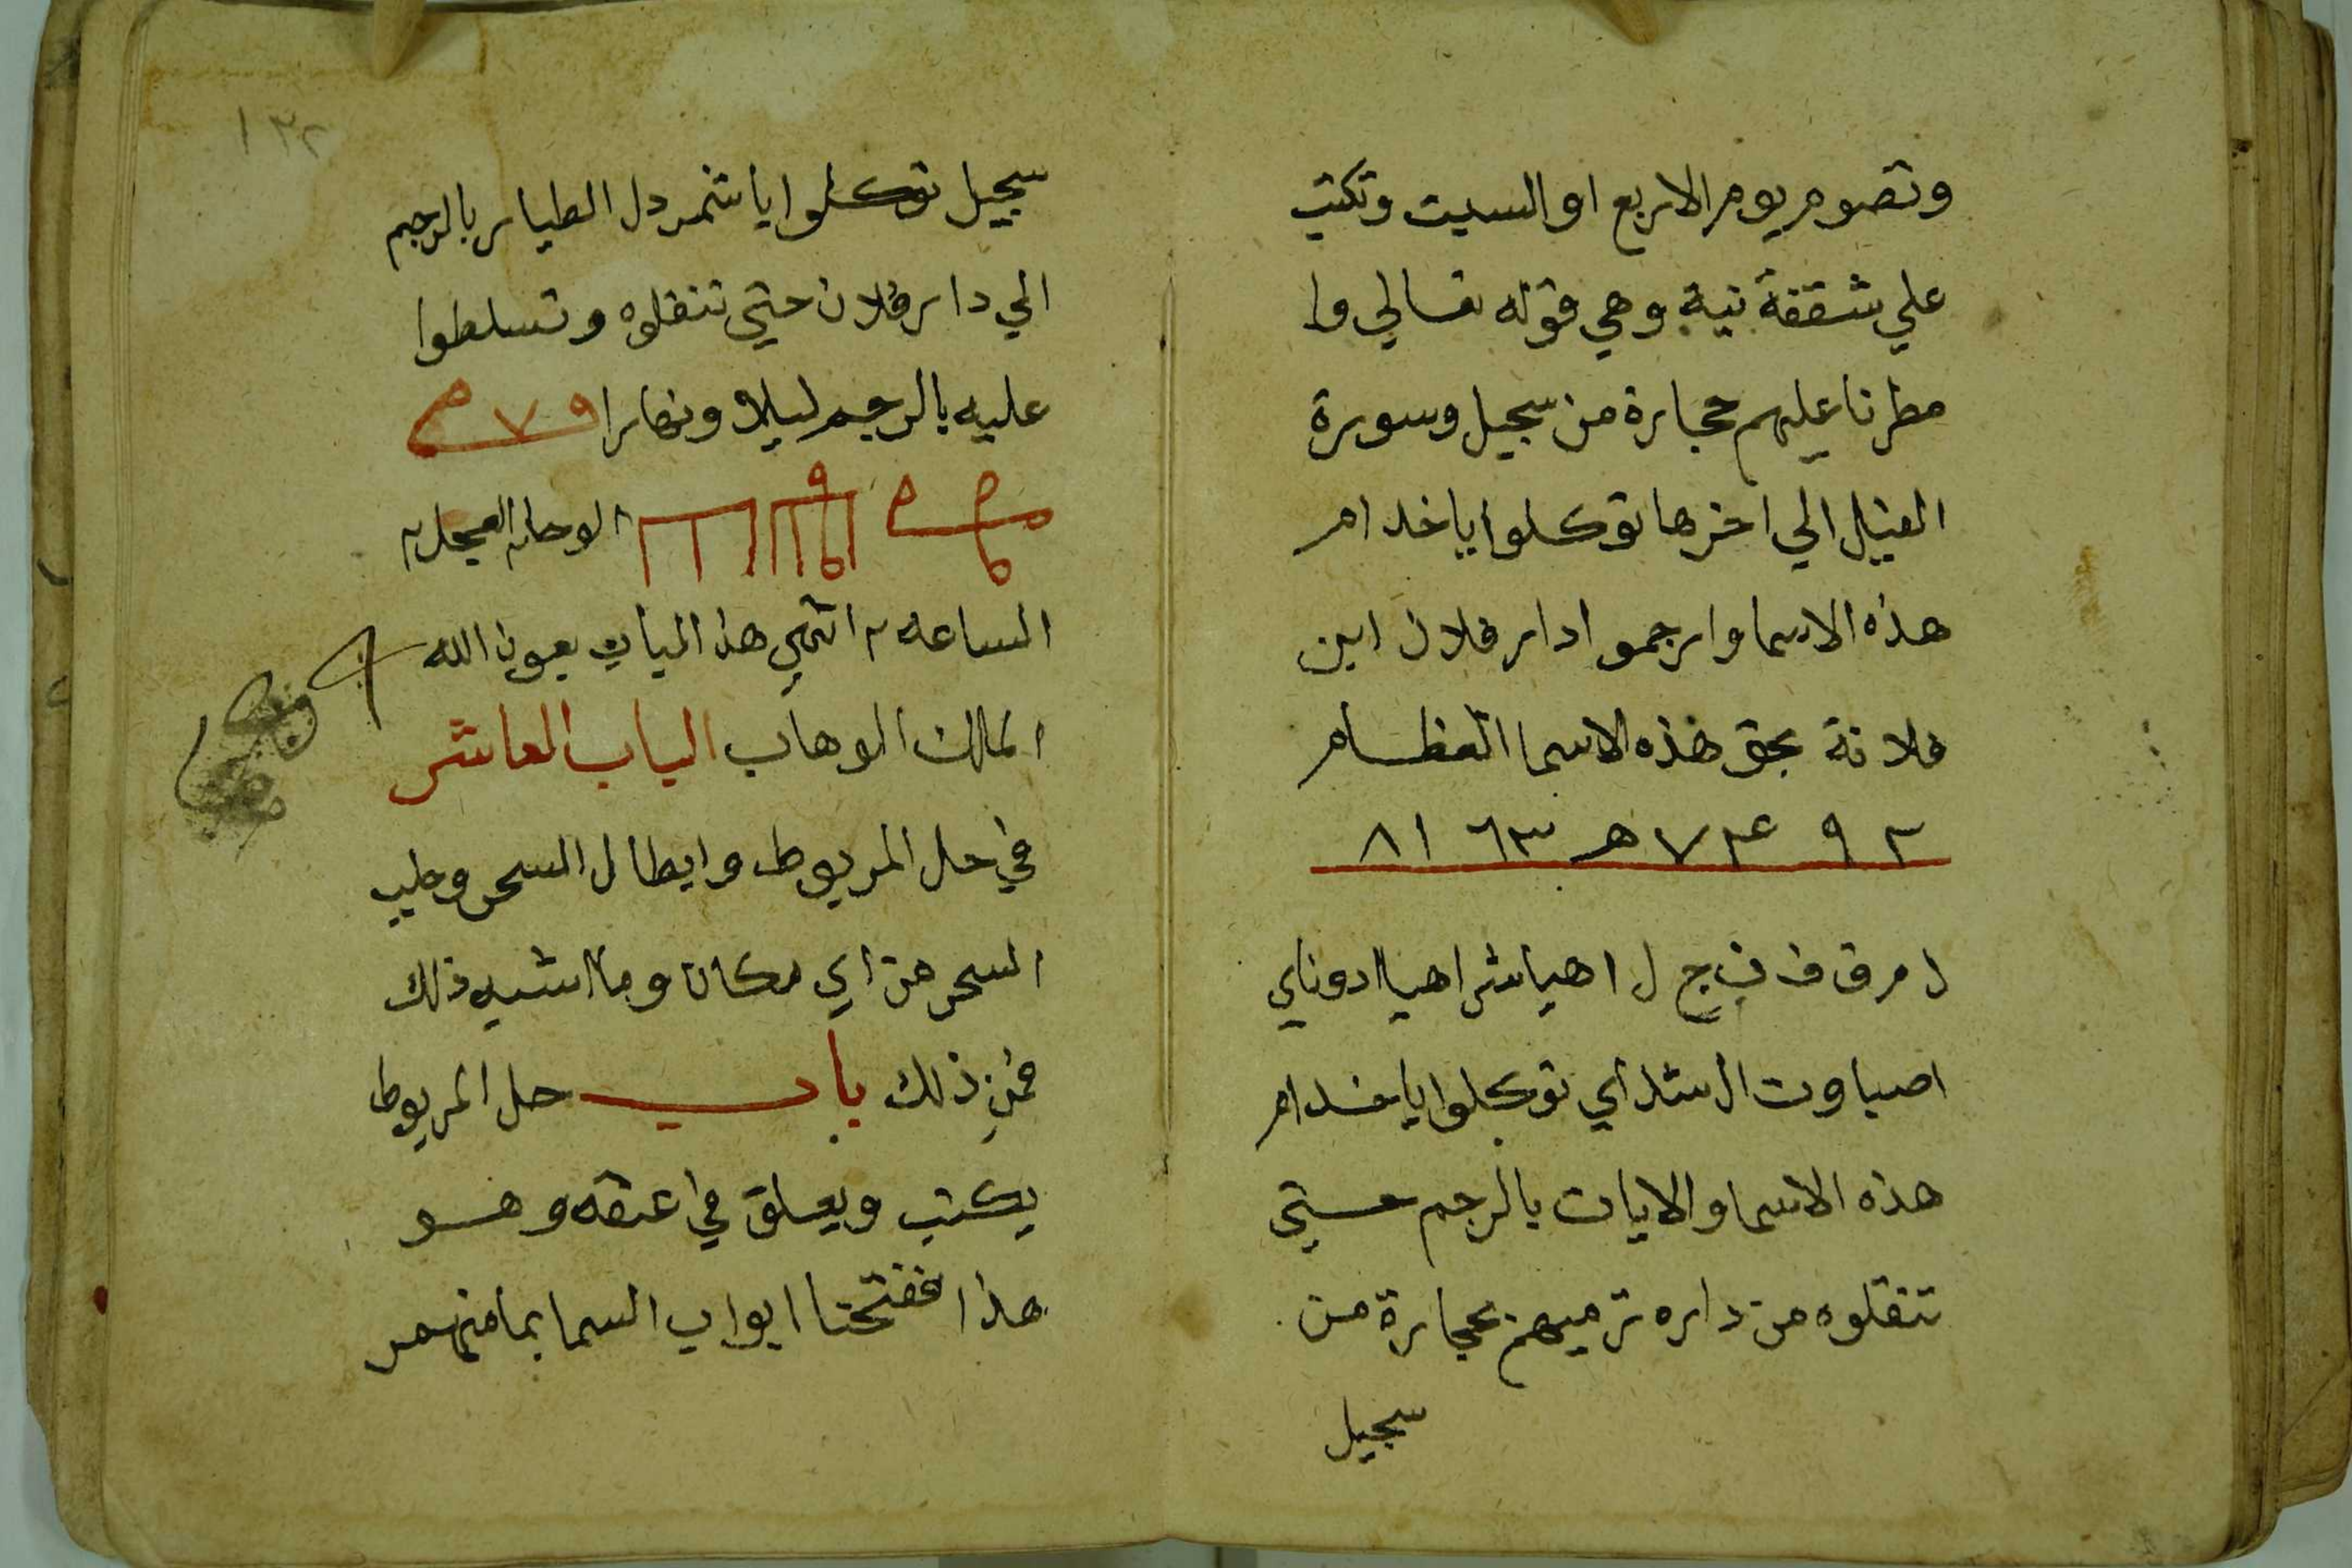 وتصوم يوم الاربع او السبت وتكتب
علي شقفة نية وهي قوله تعالي وا
مطرنا عليهم حجارة من سجيل وسورة
الفيل الي اخرها توكلوا ياخدام
هذه الاسما وارجموا دار فلان ابن
فلانة بحق هذه الاسما العظام
ل م ق ف ف ج ل اهيا شراهيا ادوناي
اصباوت ال شداي توكلوا ياخدام
هذه الاسما والايات بالرجم حتي
تنقلوه من داره ترميهم بحجارة من
سجيل
١٣٢
سجيل توكلوا يا شمردل الطيار بالرجم
الي دار فلان حتي تنقلوه وتسلطوا
عليه بالرجم ليلا ونهارا
الوحا٢ العجل٢
الساعه ٢ انتهي هذا الباب بعون الله
الملك الوهاب الباب العاشر
في حل المربوط وابطال السحر وجلب
السحر من اي مكان وما اشبه ذلك
فمن ذلك باب حل المربوط
يكتب ويعلق في عنقه وهو
هذا ففتحنا ابواب السما بما منهمر